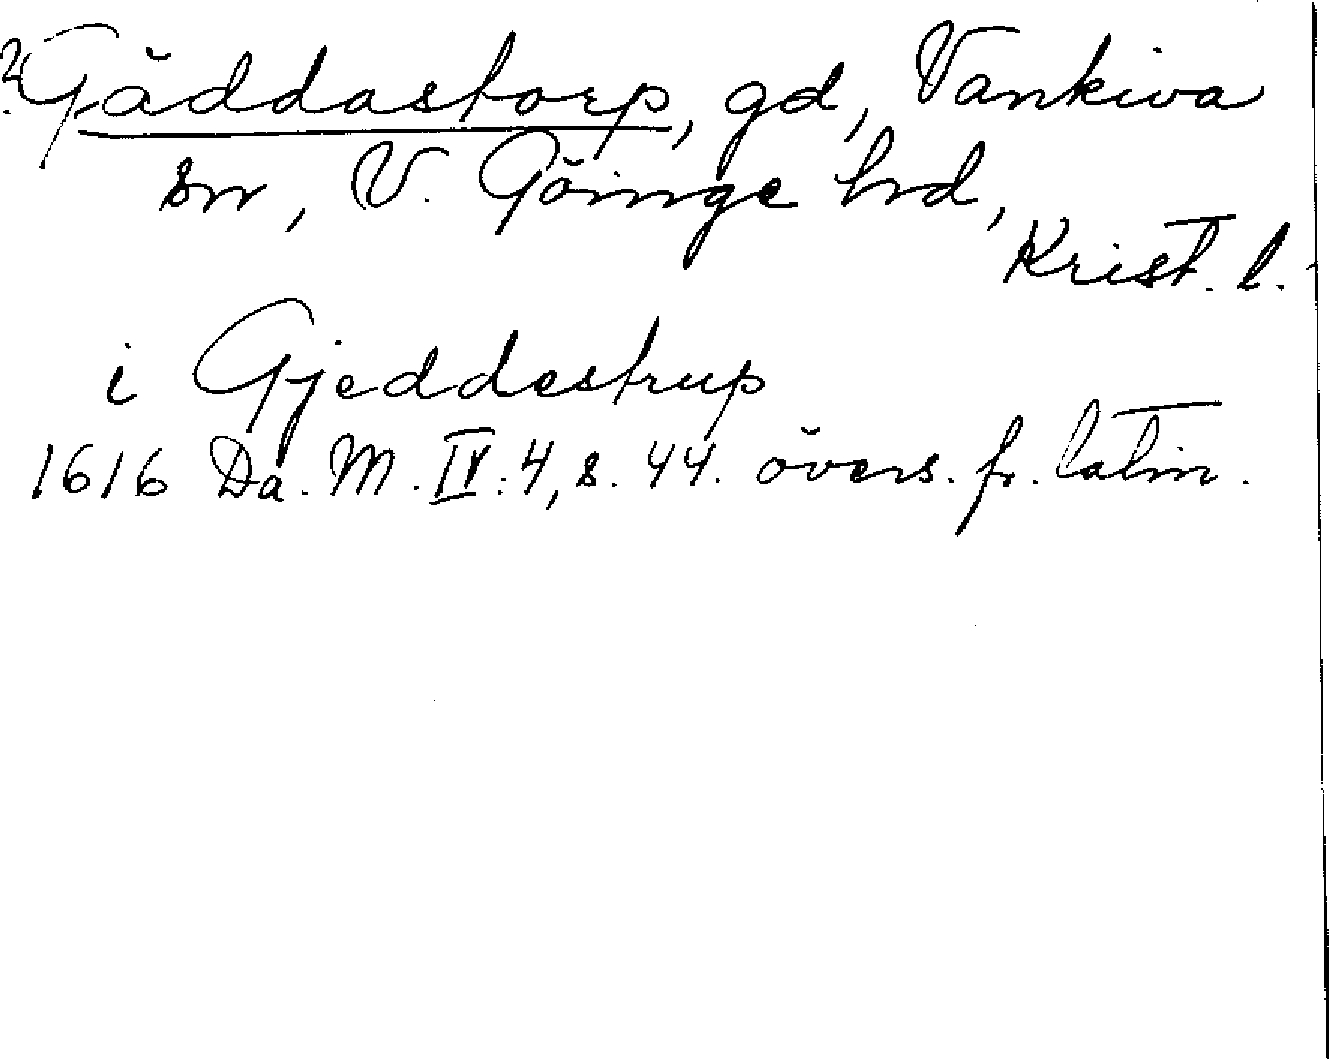 ? Gäddastorp, gd, Vankiva
sn, V. Göinge hd,
Krist. l.
i Gjeddestrup
1616 Da. M. IV: 4, s. 44. övers. fr. latin.